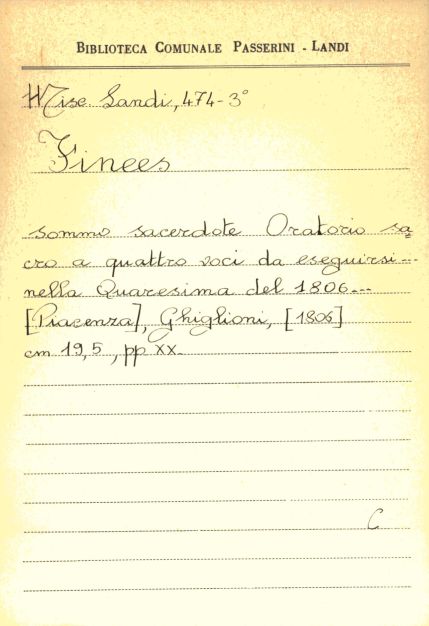 BIBLIOTECA COMUNALE PASSERINI - LANDI
Misc. Landi, 474-3°
Finees
sommo sacerdote Oratorio sa=
cro a quattro voci da eseguirsi...
nella Quaresima del 1806...
[Piacenza], Ghiglioni, [1806]
cm 19,5, pp XX.
C